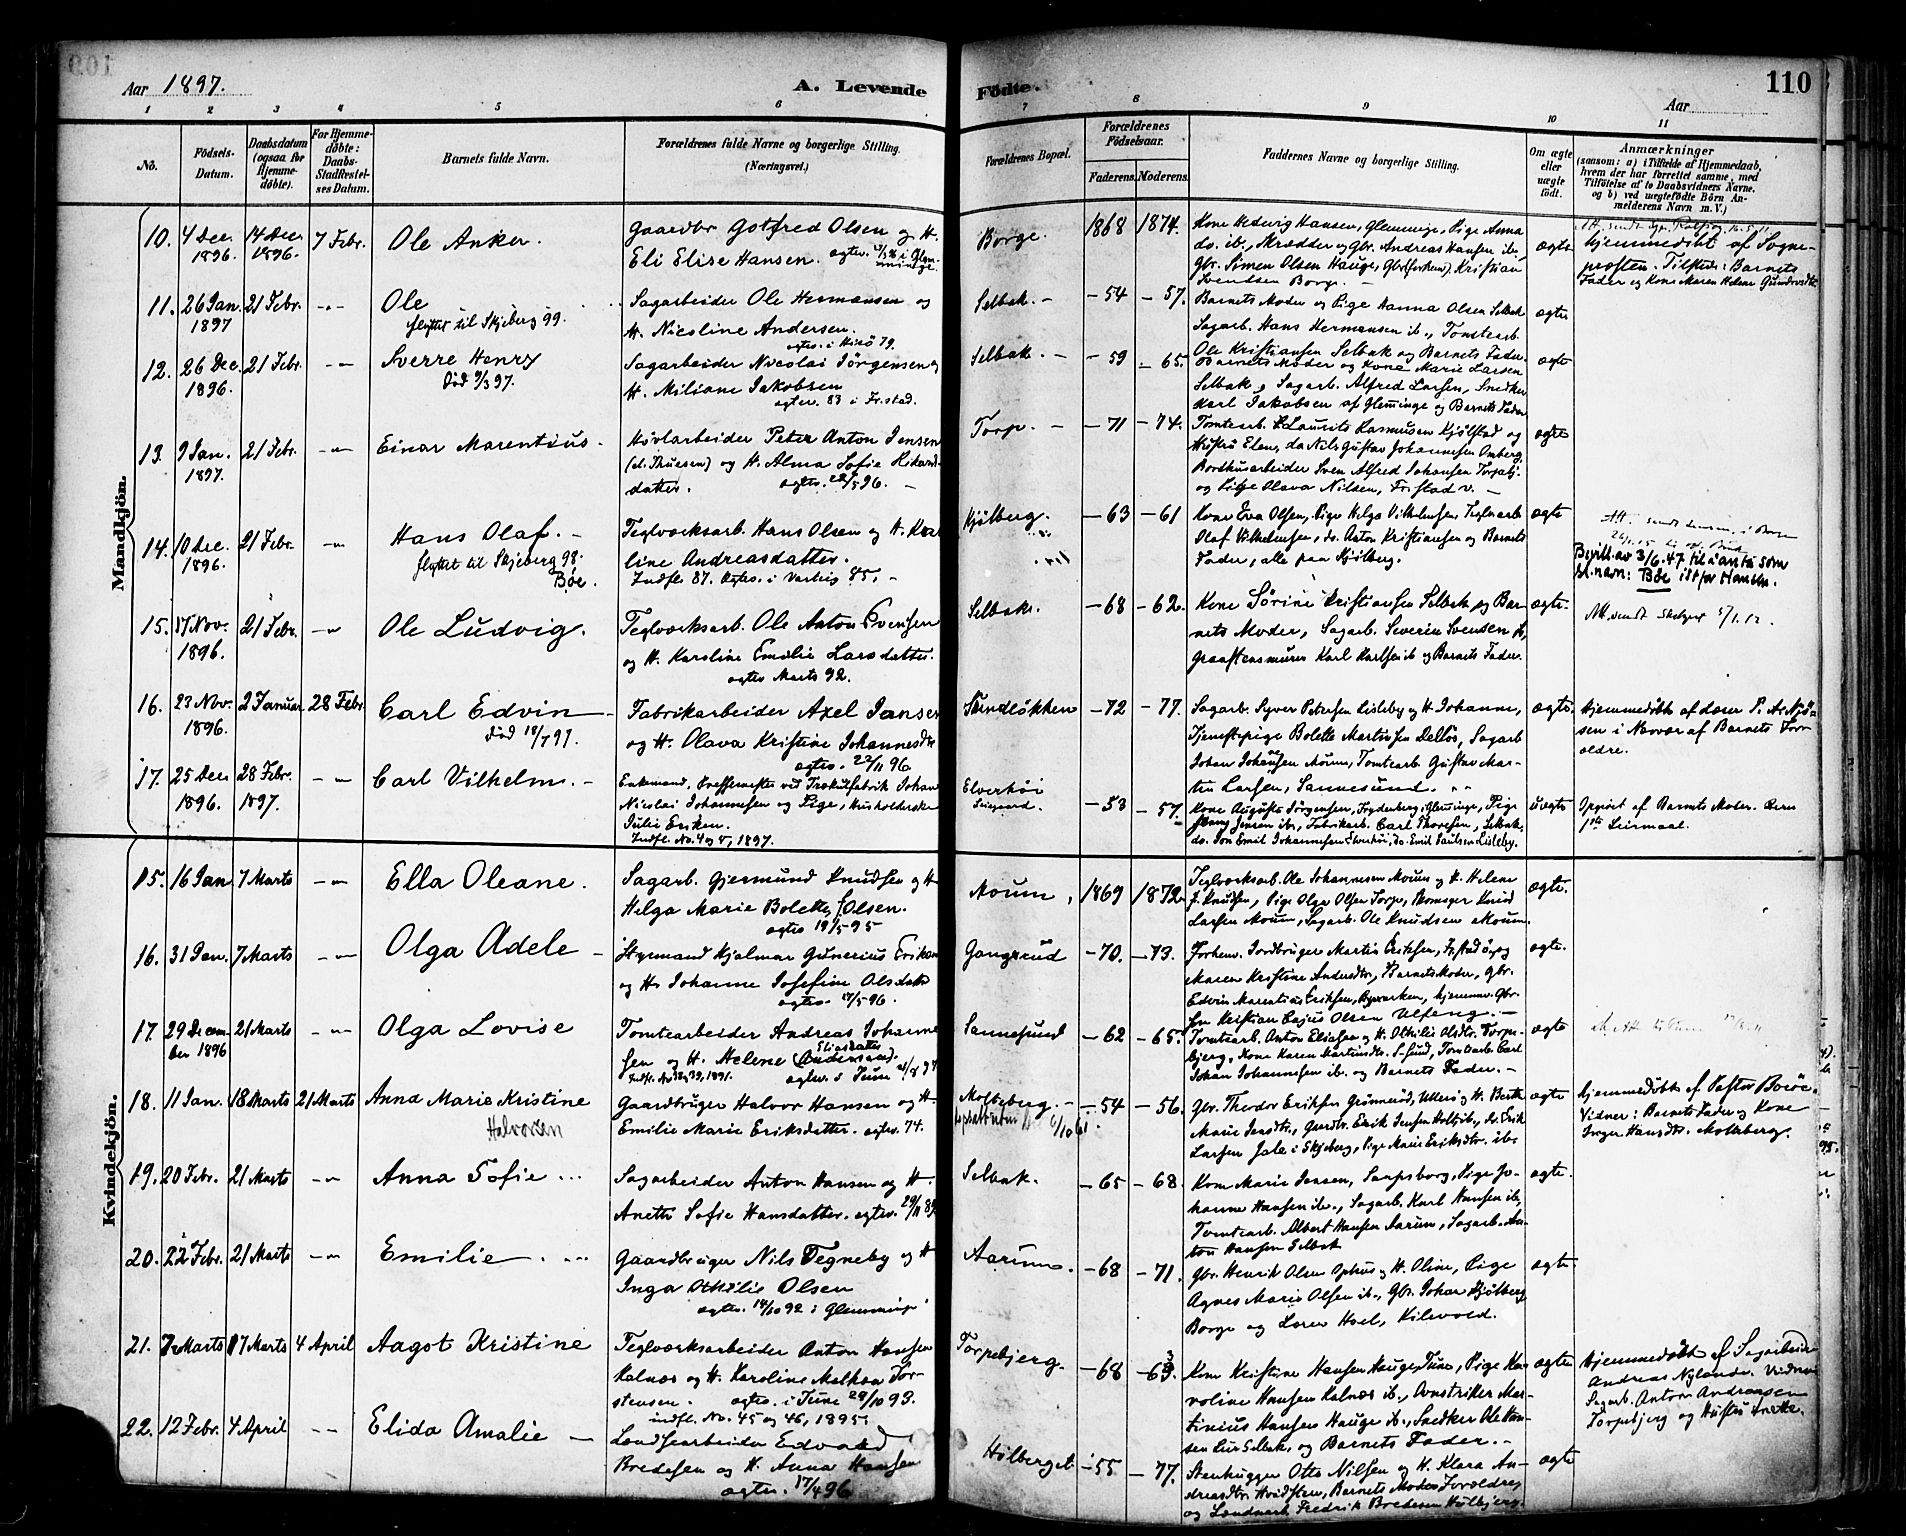 Aar 1897.
A. Levende
Fødte.
110
Aar
1 2 3 4 5 6 7 8 9 10 11
No.
Fødsels-Datum.
Daabsdatum (ogsaa for Hjemmedøbte).
For Hjemmedøbte: Daabs-Stadfæstelses Datum.
Barnets fulde Navn.
Forældrenes fulde Navne og borgerlige Stilling.
(Næringsvei.)
Forældrenes Bopæl.
Forældrenes Fødselsaar.
Faderens. Moderens.
Faddernes Navne og borgerlige Stilling.
Om ægte eller uægte født.
Anmærkninger
(saasom: a) i Tilfælde af Hjemmedaab, hvem der har forrettet samme, med Tilføielse af to Daabsvidners Navne, og b) ved uægtefødte Børn Anmelderens Navn m. V.)
Mandkjön.
10. 4 Dec. 1896. 14 Dec 1896. 7 Febr. Ole Anker.
Gaardbr Gotfred Olsen og H.
Eli Elise Hansen.
Borge. 1868 1874.
Kone Hedvig Hansen, Glemminge, Pige Anna
do. ib., Skrædder og Gbr. Andreas Hansen ib.,
Gbr. Simen Olsen Hauge, Kristian
Svendsen Borge.
ægte
Hjemmedøbt af Sogne-
præsten. Tilstede: Barnets
Fader og Kone Maren Helene
11. 26 Jan. 1897 21 Febr. -"- Ole
flyttet til Skjeberg 99.
Sagarbeider Ole Hermansen og
H. Nicoline Andersen.
ægtev. i 79.
Selbak. - 54 - 57.
Barnets Moder og Pige Hanna Olsen Selbak
Sagarb. Hans Hermansen ib., Tomtearb.
Ole Kristiansen Selbak og Barnets Fader.
ægte
12. 26 Dec. 1896. 21 Febr. -"- Sverre Henry
Død 9/3 97.
Sagarbeider Nicolai Jörgensen og
H. Miliane Jakobsen
ægtev. 83 i Fr.stad.
Selbak. - 59 - 65.
Barnets Moder og Kone Marie Larsen
Selbak, Sagarb. Alfred Larsen, Snedker
Karl Jakobsen af Glemminge og Barnets Fader
ægte
13. 9 Jan. 1897. 21 Febr. -"- Einar Marentius.
Høvlarbeider Peter Anton Jensen
og H. Alma Sofie Rikard-
datter. ægtev. 22/5 96.
Torp. - 71 - 74.
Tomtearb. Laurits Rasmussen Kjölstad og
Hustru Elen, da Nils Gustav Johannesen Omberg,
Bordhusarbeider Sven Alfred Johansen
og Pige Olava Nilsen, Fr.stad v.
ægte
14. 10 Dec. 1896. 21 Febr. -"- Hans Olaf.
flyttet til Skjeberg 98.
Bøe.
Teglværksarb. Hans Olsen og H. Kar-
line Andreasdatter.
Indfl. 87. ægtev. i Varteig 85.
Kjölberg. - 63 - 61
Kone Eva Olsen, Pige Helga Vilhelmsen, Teglvarb.
Olaf Vilhelmsen, do. Anton Kristiansen og Barnets
Fader, alle paa Kjölberg.
ægte
Bevill. av 3/6.47 til å anta som
sl.navn: Bøe istf. Hansen.
15. 17 Nov. 1896. 21 Febr. -"- Ole Ludvig.
Teglværksarb. Ole Anton Evensen
og H. Karoline Emilie Larsdatter.
ægtev Marts 92.
Selbak. - 68 - 62.
Kone Sörine Kristiansen Selbak og Bar-
nets Moder, Sagarb. Severin Svensen ib,
Graastensmurer Karl Karlsen ib og Barnets Fader.
ægte.
Att. sendt 5/1.12.
16. 23 Nov. 1896. 2 Januar 28 Febr. Carl Edvin
Død 18/7 97.
Fabrikarbeider Axel Jansen
og H. Olava Kristine Johannesdtr
ægtev. 22/11 96
- 72 - 77.
Sagarb. Syver Petersen Lisleby og H. Johanne,
Tjenestepige Bolette Martinsen, Sagarb
Johan Johansen Moum, Tomtearb Gustav Mar-
tin Larsen, Sannesund.
ægte.
Hjemmedøbt af Lærer
sen i Nærvær af Barnets For-
ældre.
17. 25 Dec 1896. 28 Febr. 1897. -"- Carl Vilhelm.
Enkemand, ved Træskufabrik Johan
Nicolai Johannesen og Pige, Husholderske
Julie Eriksen.
Indfl. No. 4 og 5, 1897.
Elverhöi
- 53 - 57
Kone Augusta Jörgensen, Glemminge, Pige
Jensen ib., Fabrikarb. Carl Thoresen, Selbak,
do. Emil Johannesen Elverhöi, do. Emil Paulsen Lisleby.
uægte
Opgivet af Barnets Moder.
1ste Leiermaal.
Kvindekjön.
15. 16 Jan 7 Marts -"- Ella Oleane.
Sagarb. Gjermund Knudsen og H
Helga Marie Bolette Olsen.
ægtev 19/5 95
Moum, 1869 1872
Teglværksarb. Ole Johannesen Moum og H. Helene
Knudsen, Pige Olga Olsen Torp, Knud
Larsen Moum, Sagarb. Ole Knudsen Moum.
ægte.
16. 31 Jan. 7 Marts -"- Olga Adele
Styrmand Hjalmar Gunerius Eriksen
og H. Johanne Josefine Olsdatter
ægtev. 17/5 96.
Gangsrud - 70. - 73.
Jordbruger Martin Eriksen, og
Maren Kristine Andersdtr, Barnets Moder, Gbr.
Edvin Marentius Eriksen,
Kristian Cajus Olsen
ægte.
17. 29 Decem-ber 1896 21 Marts -"- Olga Lovise
Tomtearbeider Andreas Johanne-
sen og H. Helene (Andersen).
Eliasdatter
ægtev. i Tune
Sannesund - 62 - 65.
Tomtearb. Anton Eliasen og H. Othilie Olsdtr. Torps-
bjerg, Kone Karen Martinsdtr. S-sund, Tomtearb. Carl
Johan Johannesen ib. og Barnets Fader.
ægte
18. 11 Jan. 18 Marts 21 Marts Anna Marie Kristine
Halvorsen
Gaardbruger Halvor Hansen og H.
Emilie Marie Eriksdatter. ægtev. 74.
Molteberg. - 54 - 56.
Gbr. Theodor Eriksen Grönneröd, og H. Berthe
Marie Larsdtr., Gaardbr. Erik Jensen, do. Erik
Larsen i Skjeberg, Pige Marie Eriksdtr. ib.
ægte
Hjemmedøbt af Pastor
Vidner: Barnets Fader og Kone
Inger Hansdtr. Molteberg.
19. 20 Febr. 21 Marts -"- Anna Sofie
Sagarbeider Anton Hansen og H.
Anette Sofie Hansdatter. ægtev. 29/11 89
Selbak. - 65 - 68.
Kone Marie Jensen, Sarpsborg, Pige Jo-
hanne Hansen ib., Sagarb. Karl Hansen ib,
Tomtearb. Albert Hansen Aarum, Sagarb. An-
ton Hansen Selbak
ægte.
20. 22 Febr. 21 Marts -"- Emilie
Gaardbruger Nils Tegneby og H
Inga Othilie Olsen
ægtev. 14/10 92 i Glemminge
Aarum. - 68 - 71.
Gbr. Henrik Olsen Ophus og H. Oline, Pige
Agnes Marie Olsen ib., Gbr. Johan Kjölberg
Borge og Loren Hoel, Kilevold.
ægte
21. 7 Marts 17 Marts 4 April Aagot Kristine
Teglværksarbeider Anton Hansen
Kalnæs og H. Karoline Mathea Tor-
stensen. ægtev. i Tune 29/10 93.
indfl. No. 45 og 46, 1895.
Torpebjerg. - 68 - 63
Kone Kristine Hansen Hauge, Tune, Pige Ka-
roline Hansen Kalnæs ib., Mar-
tinius Hansen Hauge ib., Snedker Ole Han-
sen Selbak, og Barnets Fader.
ægte
Hjemmedøbt af Sagarbeider
Andreas Nylande. Vidner
Sagarb. Anton Andreasen
Torpebjerg og Hustru
22. 12 Febr. 4 April -"- Elida Amalie
Landsearbeider Edvard
Bredesen og H. Anna Hansen
ægtev. 17/4 96
Hölberget - 55 - 77.
Stenhugger Otto Nilsen og H. Klara An-
dreasdtr. Hvidsten, Barnets Moder, Forældre,
og Landmand Fredrik Bredesen Hölbjerg.
ægte